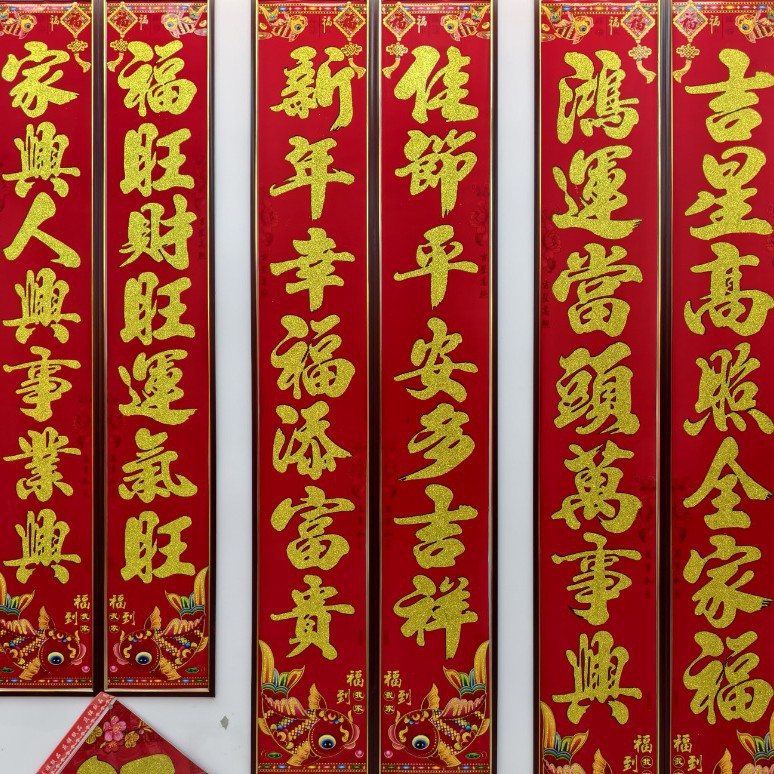 吉星高照全家福
鴻運當頭萬事興
佳節平安多吉祥
新年幸福添富貴
福旺財旺運氣旺
家興人興事業興
福
福
福
福
福
福
福
福
福
福
福到我家
福到我家
福到我家
福到我家
福到
福到